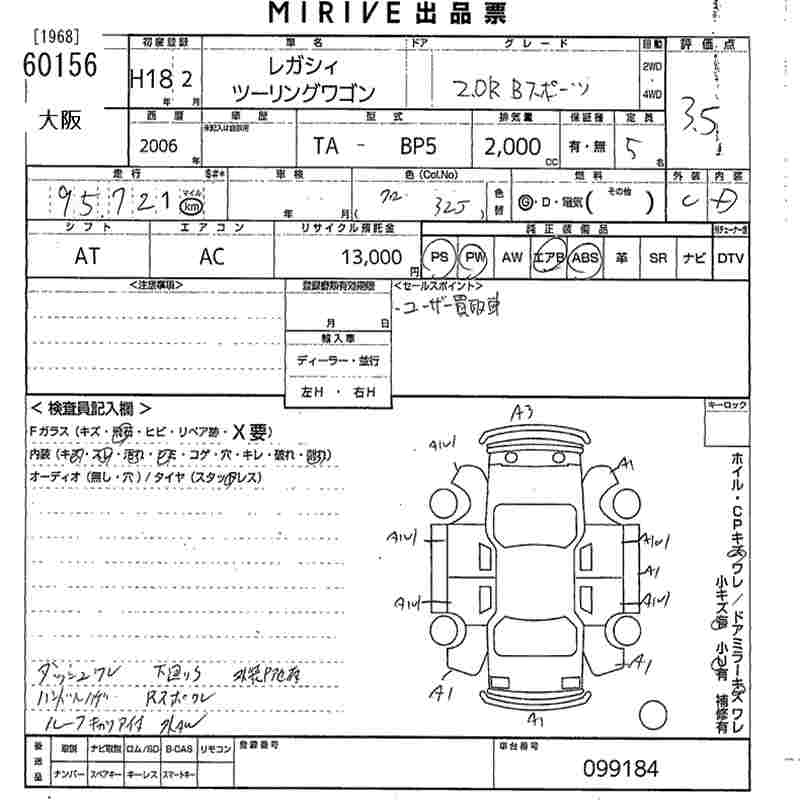 MIRIVE 出品票
[1968]
60156
大阪
初度登録 車名 ドア グレード 自動 評価点
H18 2
年 月
レガシィ
ツーリングワゴン
2.0R Bスポーツ
2WD
・
4WD
3.5
西暦 車歴 型式 排気量 保証書 定員
未記入は自家用
2006 年
TA - BP5
2,000 CC
有・無
5 名
走行 $#* 車検 色(Col.No) 燃料 外装 内装
95,721
マイル
km
年 月
325
色替
G・D・電気( その他 )
C D
シフト エアコン リサイクル預託金 純正装備品
AT AC 13,000 円
PS PW AW エアB ABS 革 SR ナビ DTV
<注意事項>
登録書類有効期限
月 日
<セールスポイント>
・ユーザー買取車
輸入車
ディーラー・並行
左H ・ 右H
< 検査員記入欄 >
Fガラス (キズ・飛石・ヒビ・リペア跡・X要)
内装 (キズ・スレ・汚れ・シミ・コゲ・穴・キレ・破れ・剥れ)
オーディオ (無し・穴) / タイヤ (スタッドレス)
キーロック
A3
A1U1
A1
A1U1
A1U1
A1
A1U1
A1U1
A1
A1
A1
ホイル・CPキズワレ/ドアミラーキズワレ
小キズ有 小U有 補修有
ダッシュワレ 下廻りS
ハンドルハゲ
外AW
後送品
取説 ナビ取説 ロム/SD B-CAS リモコン
ナンバー スペアキー キーレス スマートキー
登録番号
車台番号
099184